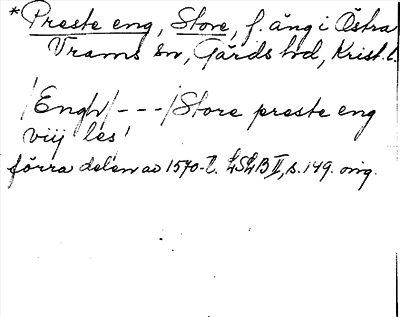 *Preste eng, Store, f. äng i Östra
Vrams sn, Gärds hd, Krist. l.
/Engh/ - - - /Store preste eng
viij les'
förra delen av 1570-t. LSLB II, s. 149. orig.